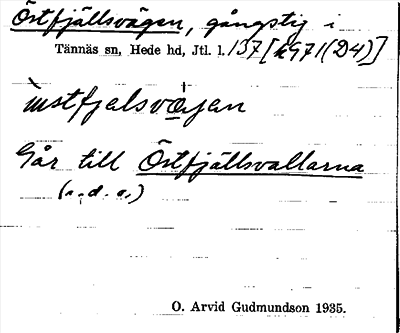 Östfjällsvägen, gångstig i
Tännäs sn, Hede hd, Jtl. l. 137 [k971(D4)]
Går till Östfjällsvallarna
(s. d. o.)
O. Arvid Gudmundson 1935.